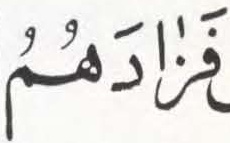 فَزَادَهُمُ